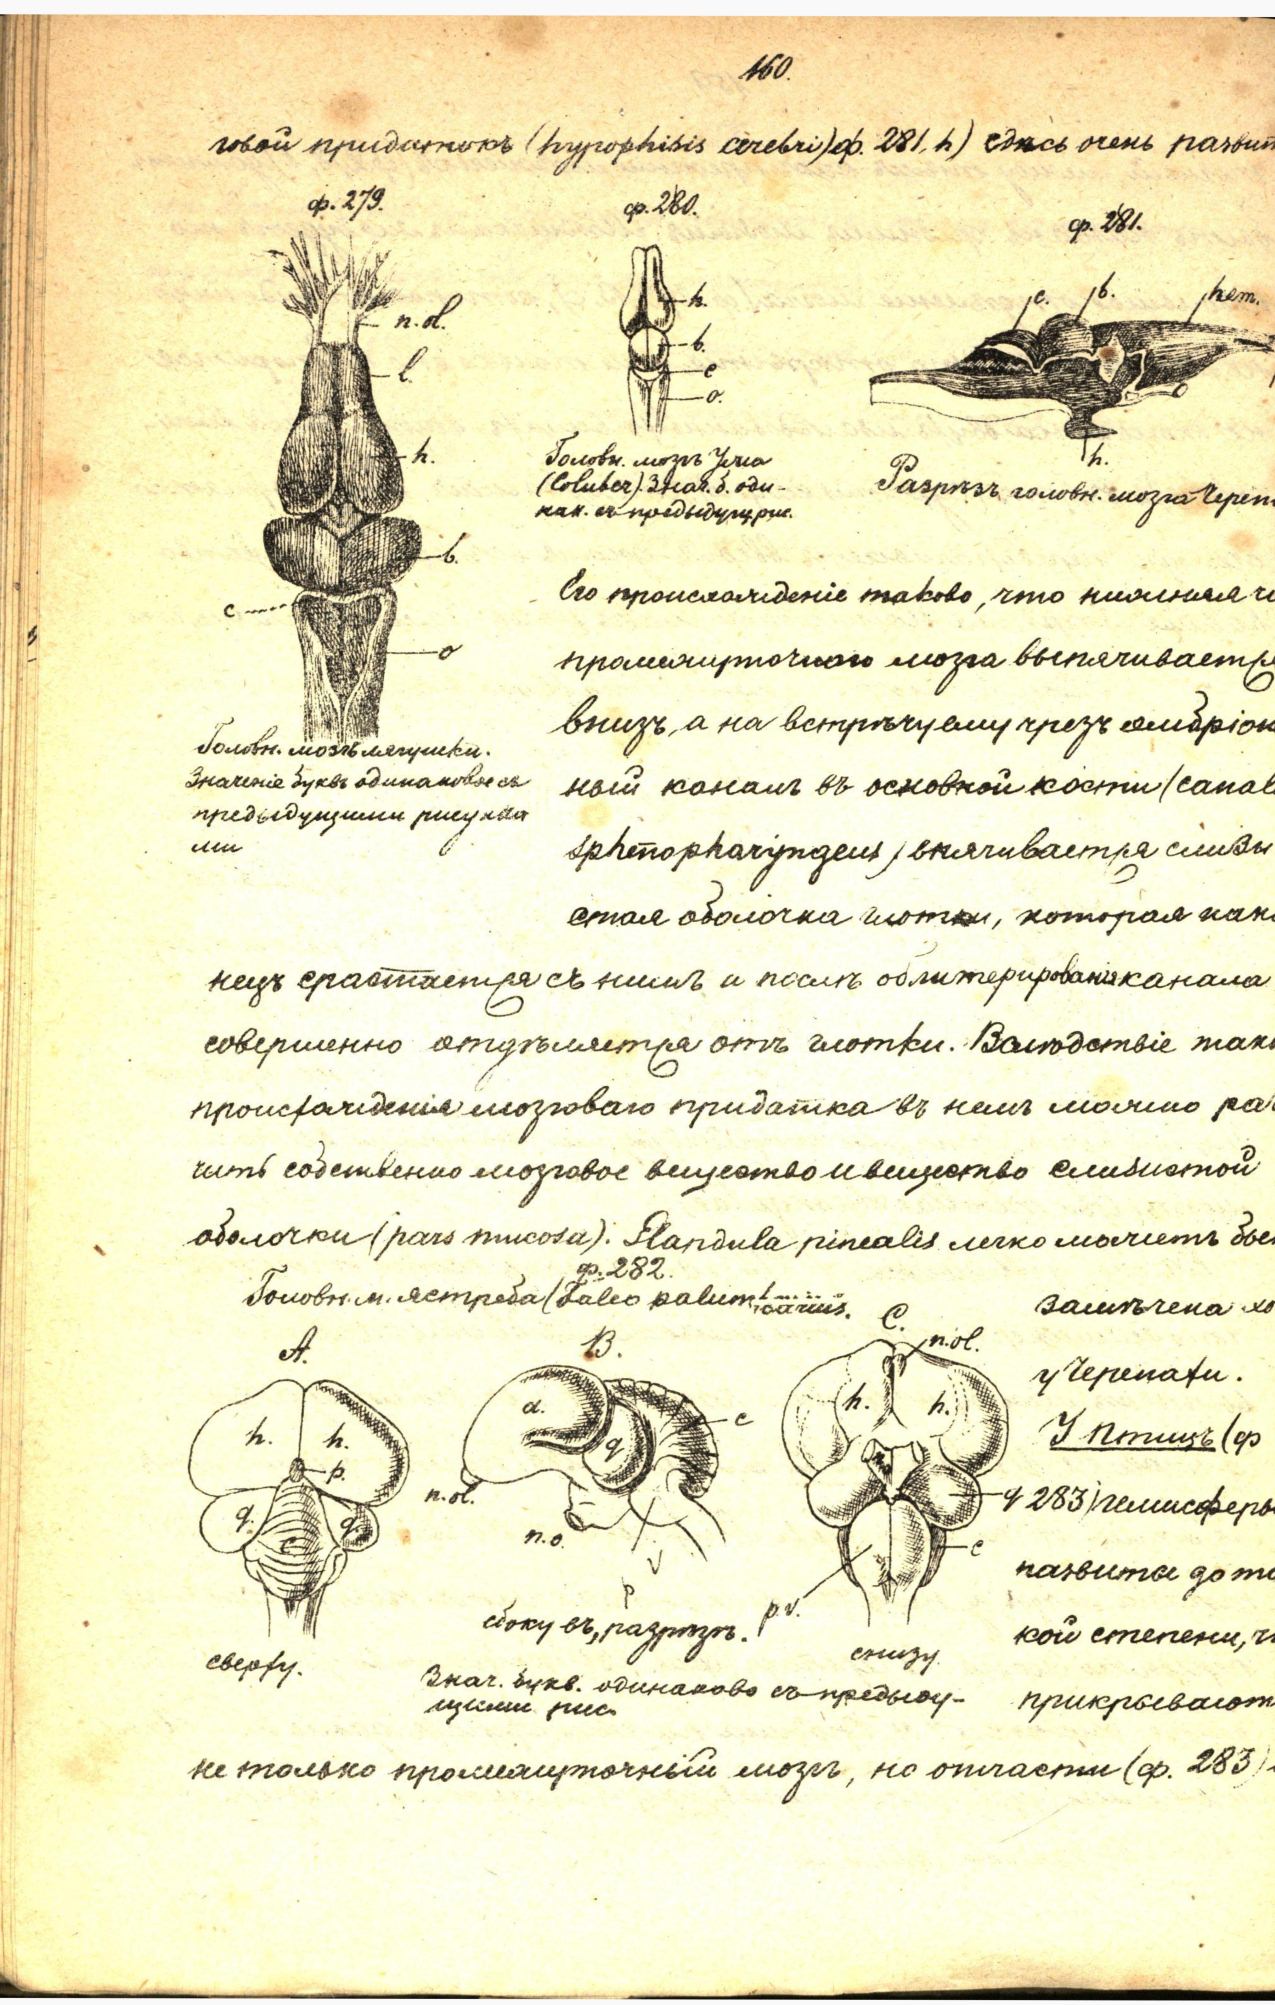 160.
говой придатокъ (hypophisis cerebri) ф. 281, h) здѣсь очень развит
ф. 279.
ф. 280.
ф. 281.
n. ol.
l.
h.
b.
c
o
h.
b.
c
o.
c.
b.
hem.
h.
Головн. мозгъ Ужа
(Coluber). Знач. б. оди-
нак. съ предыдущ. рис.
Разрѣзъ головн. мозга Череп
Головн. мозгъ лягушки.
Значеніе буквъ одинаковое съ
предыдущими рисунка
ми
Его происхожденіе таково, что нижняя ча
промежуточного мозга выпячивается
внизъ, а на встрѣчу ему чрезъ эмбріон
ный каналъ въ основной кости (canal
sphenopharyngeus) впячивается слизи
стая оболочка глотки, которая нако
нецъ срастается съ нимъ и послѣ облитерированія канала
совершенно отдѣляется отъ глотки. Вслѣдствіе тако
происхожденія мозговаго придатка въ немъ можно раз
чить собственно мозговое вещество и вещество слизистой
оболочки (pars mucosa). Glandula pinealis легко можетъ бы
ф. 282.
Головн. м. ястреба (Falco palumbarius.
замѣчена
у Черепахи.
У Птицъ (ф
283) гемисферы
развиты до та
кой степени, ч
прикрываютъ
A.
h. h.
p.
q. q.
c
сверху.
B.
a.
q
c
n. ol.
n. o.
p
сбоку въ разрѣзѣ.
C.
n. ol.
h. h.
q
c
p. v.
снизу.
Знач. букв. одинаково съ предыду-
щими рис.
не только промежуточный мозгъ, но отчасти (ф. 283)